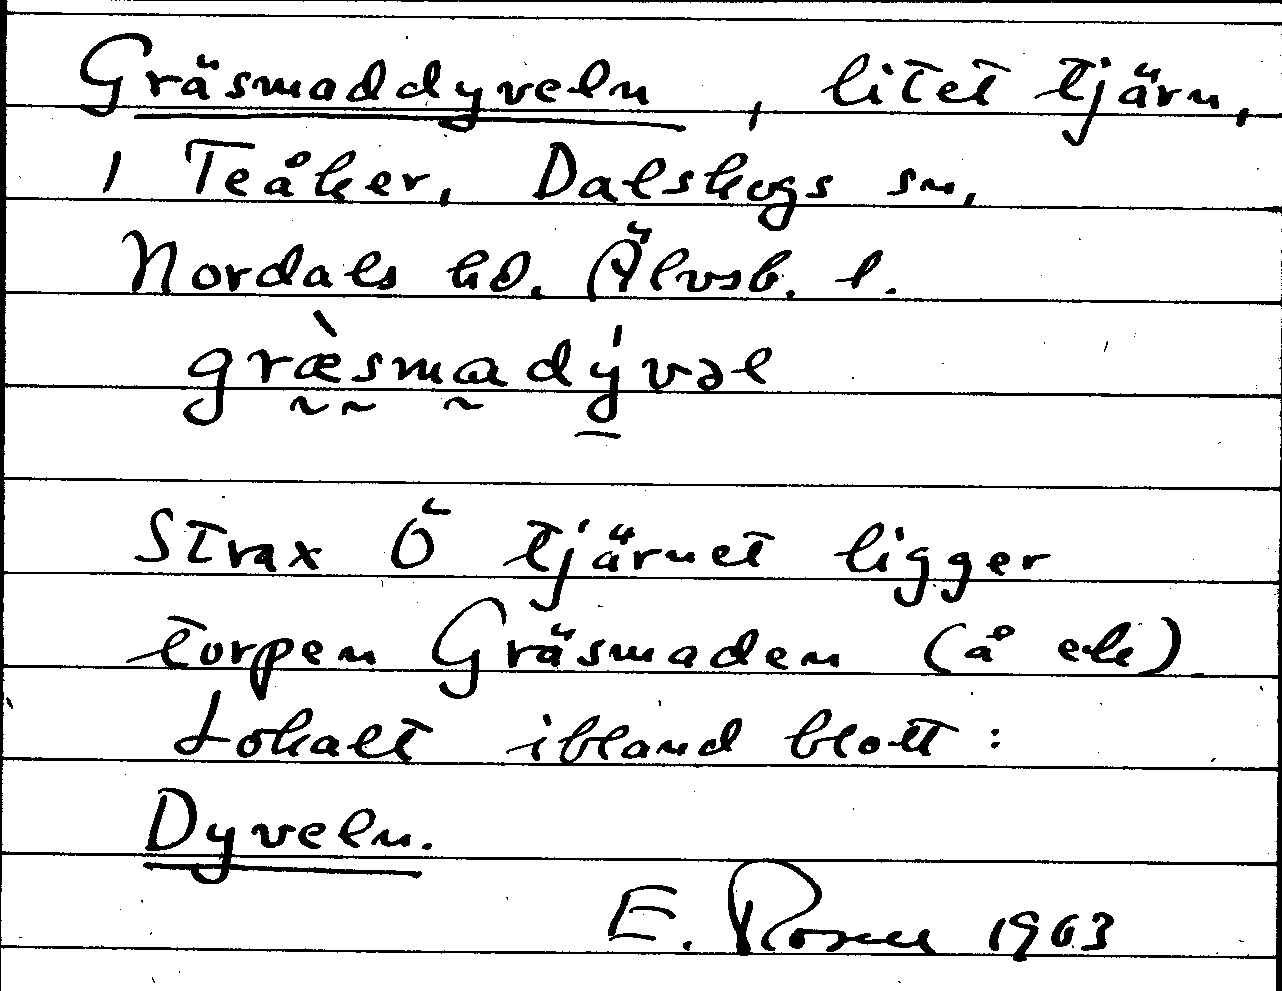 Gräsmaddyveln, litet tjärn,
i Teåker, Dalskogs sn,
Nordals hd. Älvsb. l.
græ̀smadývəl
Strax Ö tjärnet ligger
torpen Gräsmaden (å ek)
Lokalt ibland blott:
Dyveln.
E. Rosell 1963